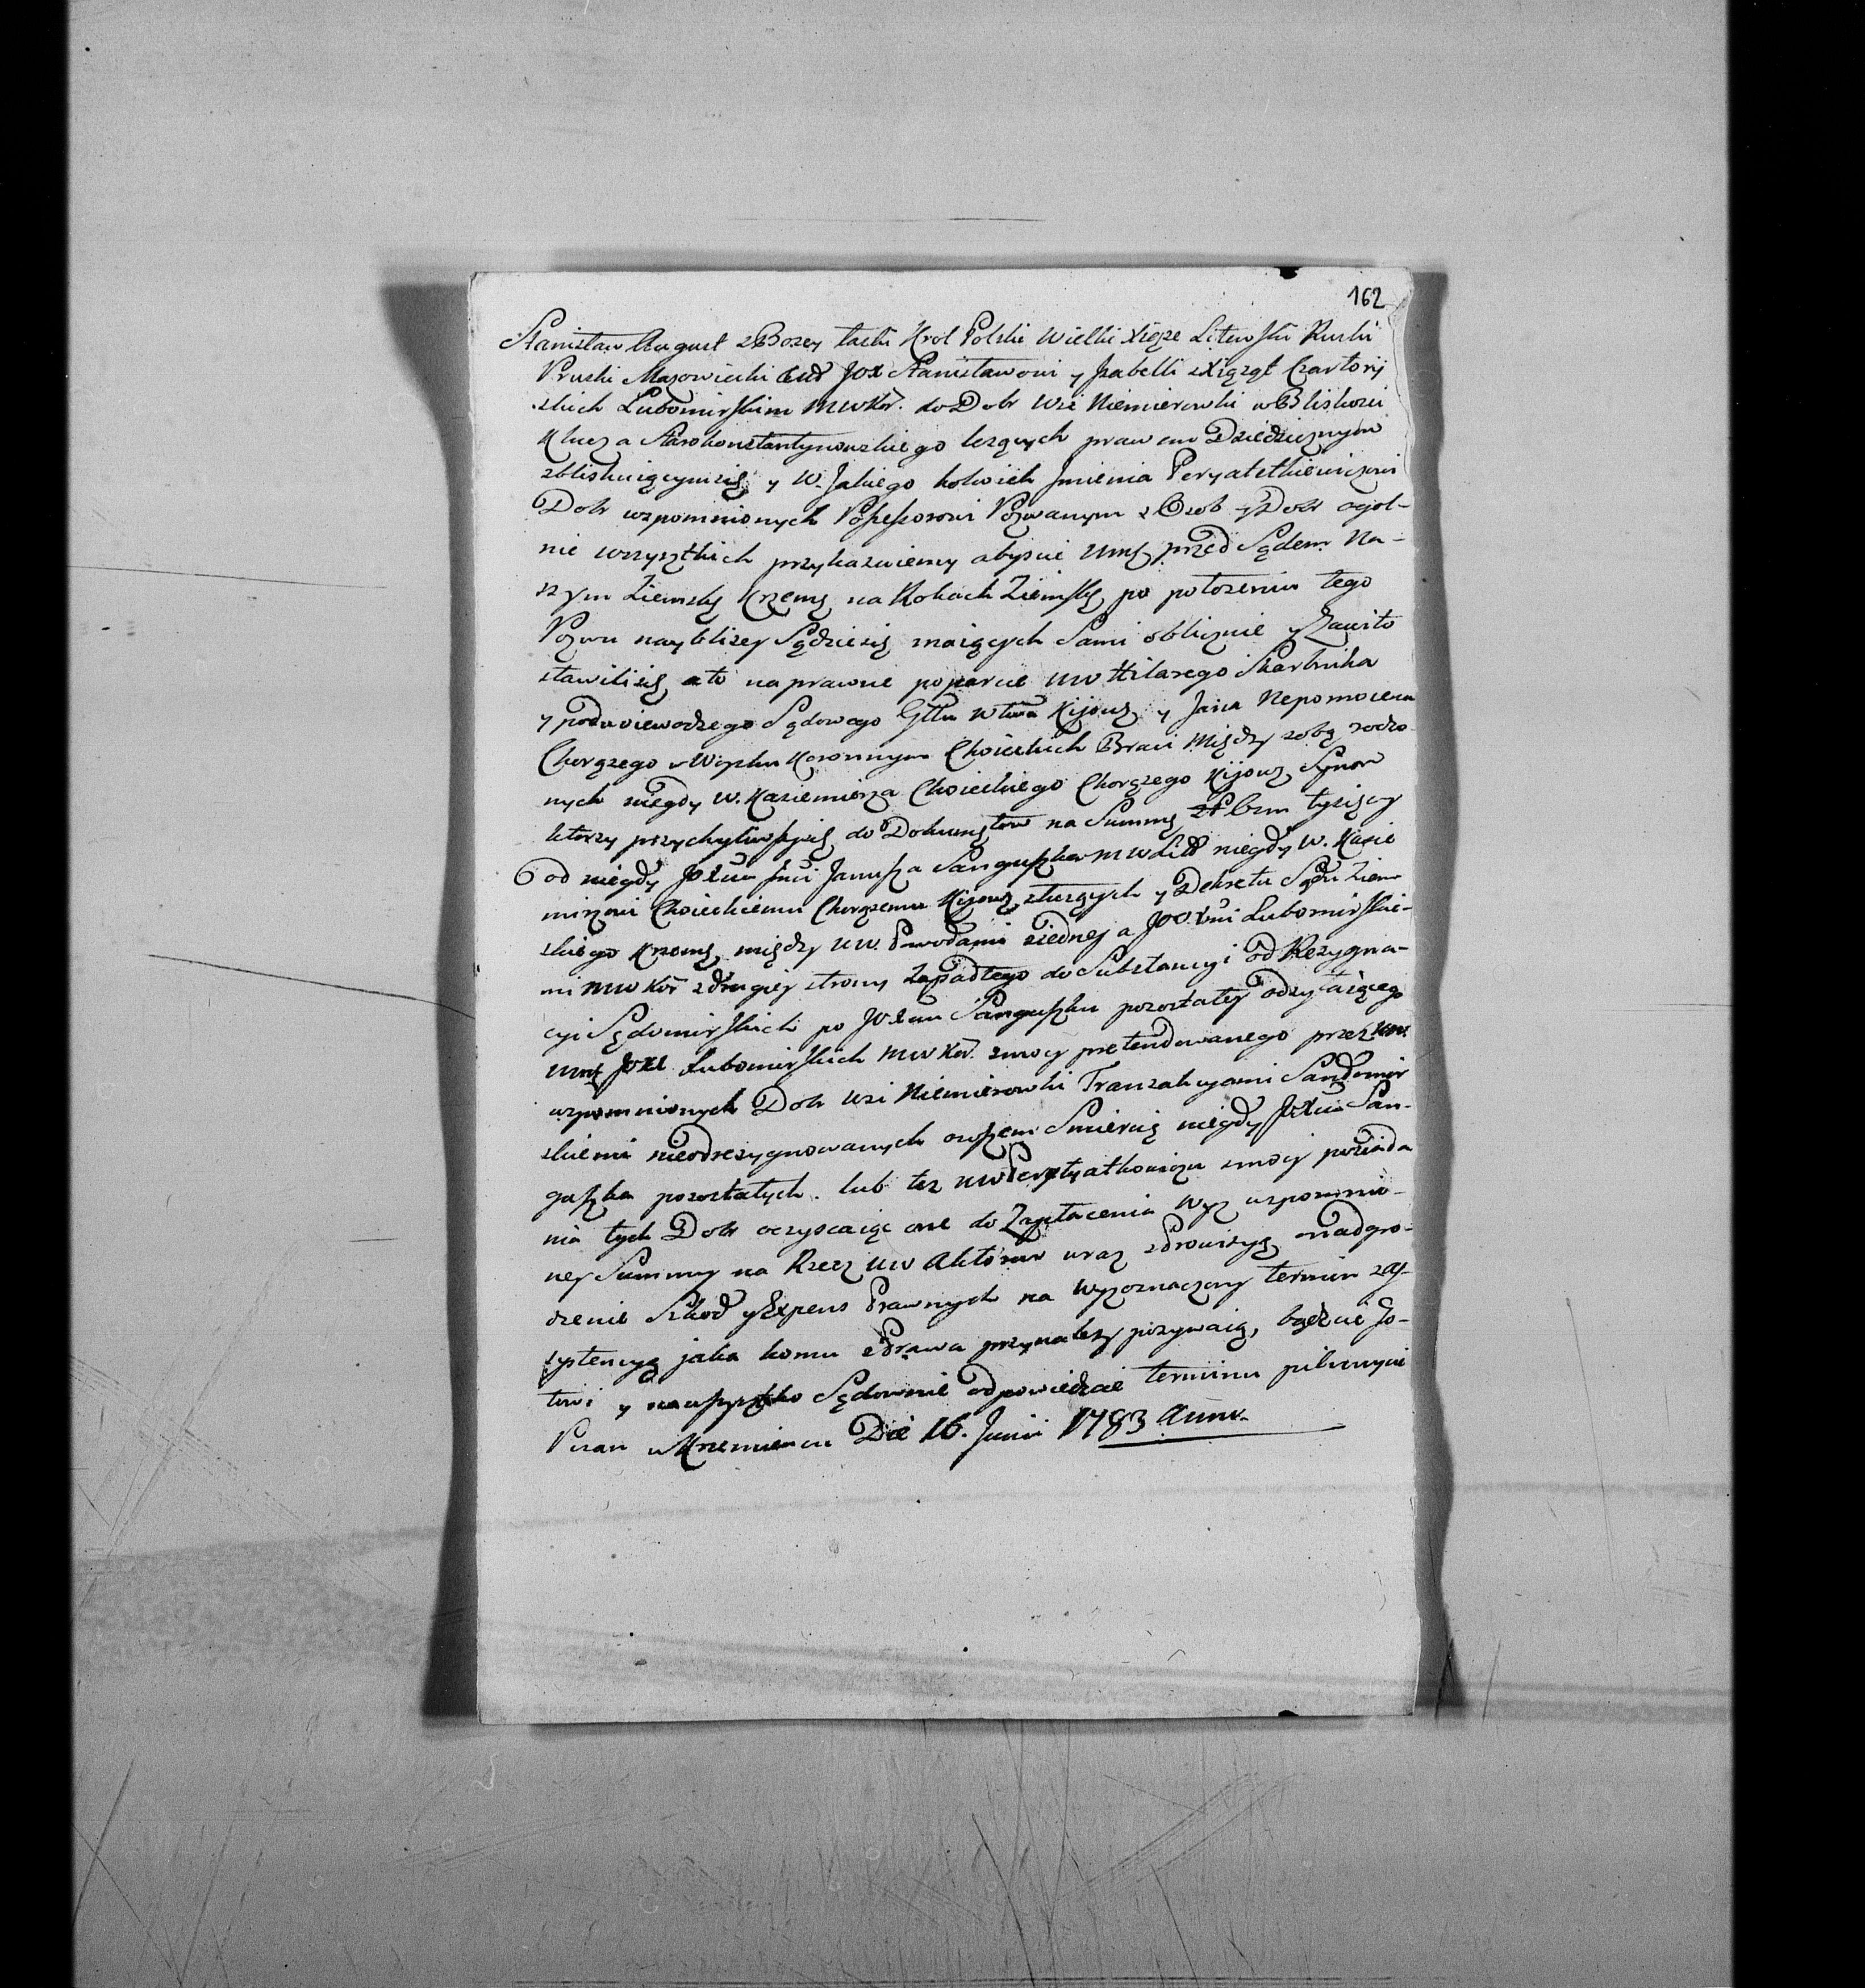 162
Stanisław August z Bozey łaski Krol Polski Wielki Xięze Litewski Ruski
Pruski Mazowiecki &c JOX Stanisławowi y Jzabelli z Xiąząt Czartoryi
skich Lubomirskim MWKor. do Dobr Wsi Niemierowki w Bliskosci
Klucza Starokonstantynowskiego lezących prawem Dziedzicznym
zbliskuiącymsię y W. Jakiego kolwiek Jmienia Peryatetkiewiczowi
Dobr wspomnionych Possessorowi Pozwanym z Osob y Dobr ogol-
nie wszystkich przykazuiemy abyscie Umę przed Sądem Na-
szym Ziemskę Krzemę na Rokach Ziemskę po połozeniu tego
Pozwu nayblizey Sądzicsię maiących Sami oblicznie y Zawito
stawilisię a to na prawne poparcie UW Hilarego Skarbnika
y podwoiewodzego Sądowego Gttu Wtwa Kijowę y Jana Nepomocena
Chorązego w Woysku Koronnym Choieckich Braci Między sobą rodzo
nych niegdy W. Kaziemierza Choieckiego Chorązego Kijowę Synow
ktorzy przychyliwszysię do Dokumętow na Summę zł Osm tysięcy
od niegdy JOXcia Jmci Janusza Sanguszka MWLitt niegdy W. Kazie
mirzowi Choieckiemu Chorązemu Kijowę słuzących y Dekretu Sądu Ziem
skiego Krzemę między UW. Powodami ziedney a JOO. Xmi Lubomirskie-
mi MWKor zdrugiey strony Zapadłego do Substancyi od Rezygna-
cyi Sędomirskich po JOXciu Sanguszku pozostałey odzyłaiącego
Umę JOXX Lubomirskich MWKor. zmocy pretendowanego przez UW.
wspomnionych Dobr Wsi Niemierowki Tranzakcyami Sandomir
skiemi nieodrezygnowanych owszem Smiercią niegdy JOXcia San-
guszka pozostałych. lub tez UW Peryatkowicza zmocy posiada
nia tych Dobr oczyscaiąc one do Zapłacenia Wyz wspomnio-
ney Summy na Rzecz UW Aktorow wraz zdrowizyą y nadgro-
dzenie Szkod y Expens Prawnych na Wyzoznaczony termin zasy-
systencyą jaka komu zPrawa przynalezy pozywaią, bądzcie Go-
towi y nawszystko Sądownie odpowiedzcie terminu pilnuycie
Pisan w Krzemiencu Die 16. Junii 1783 Anno.